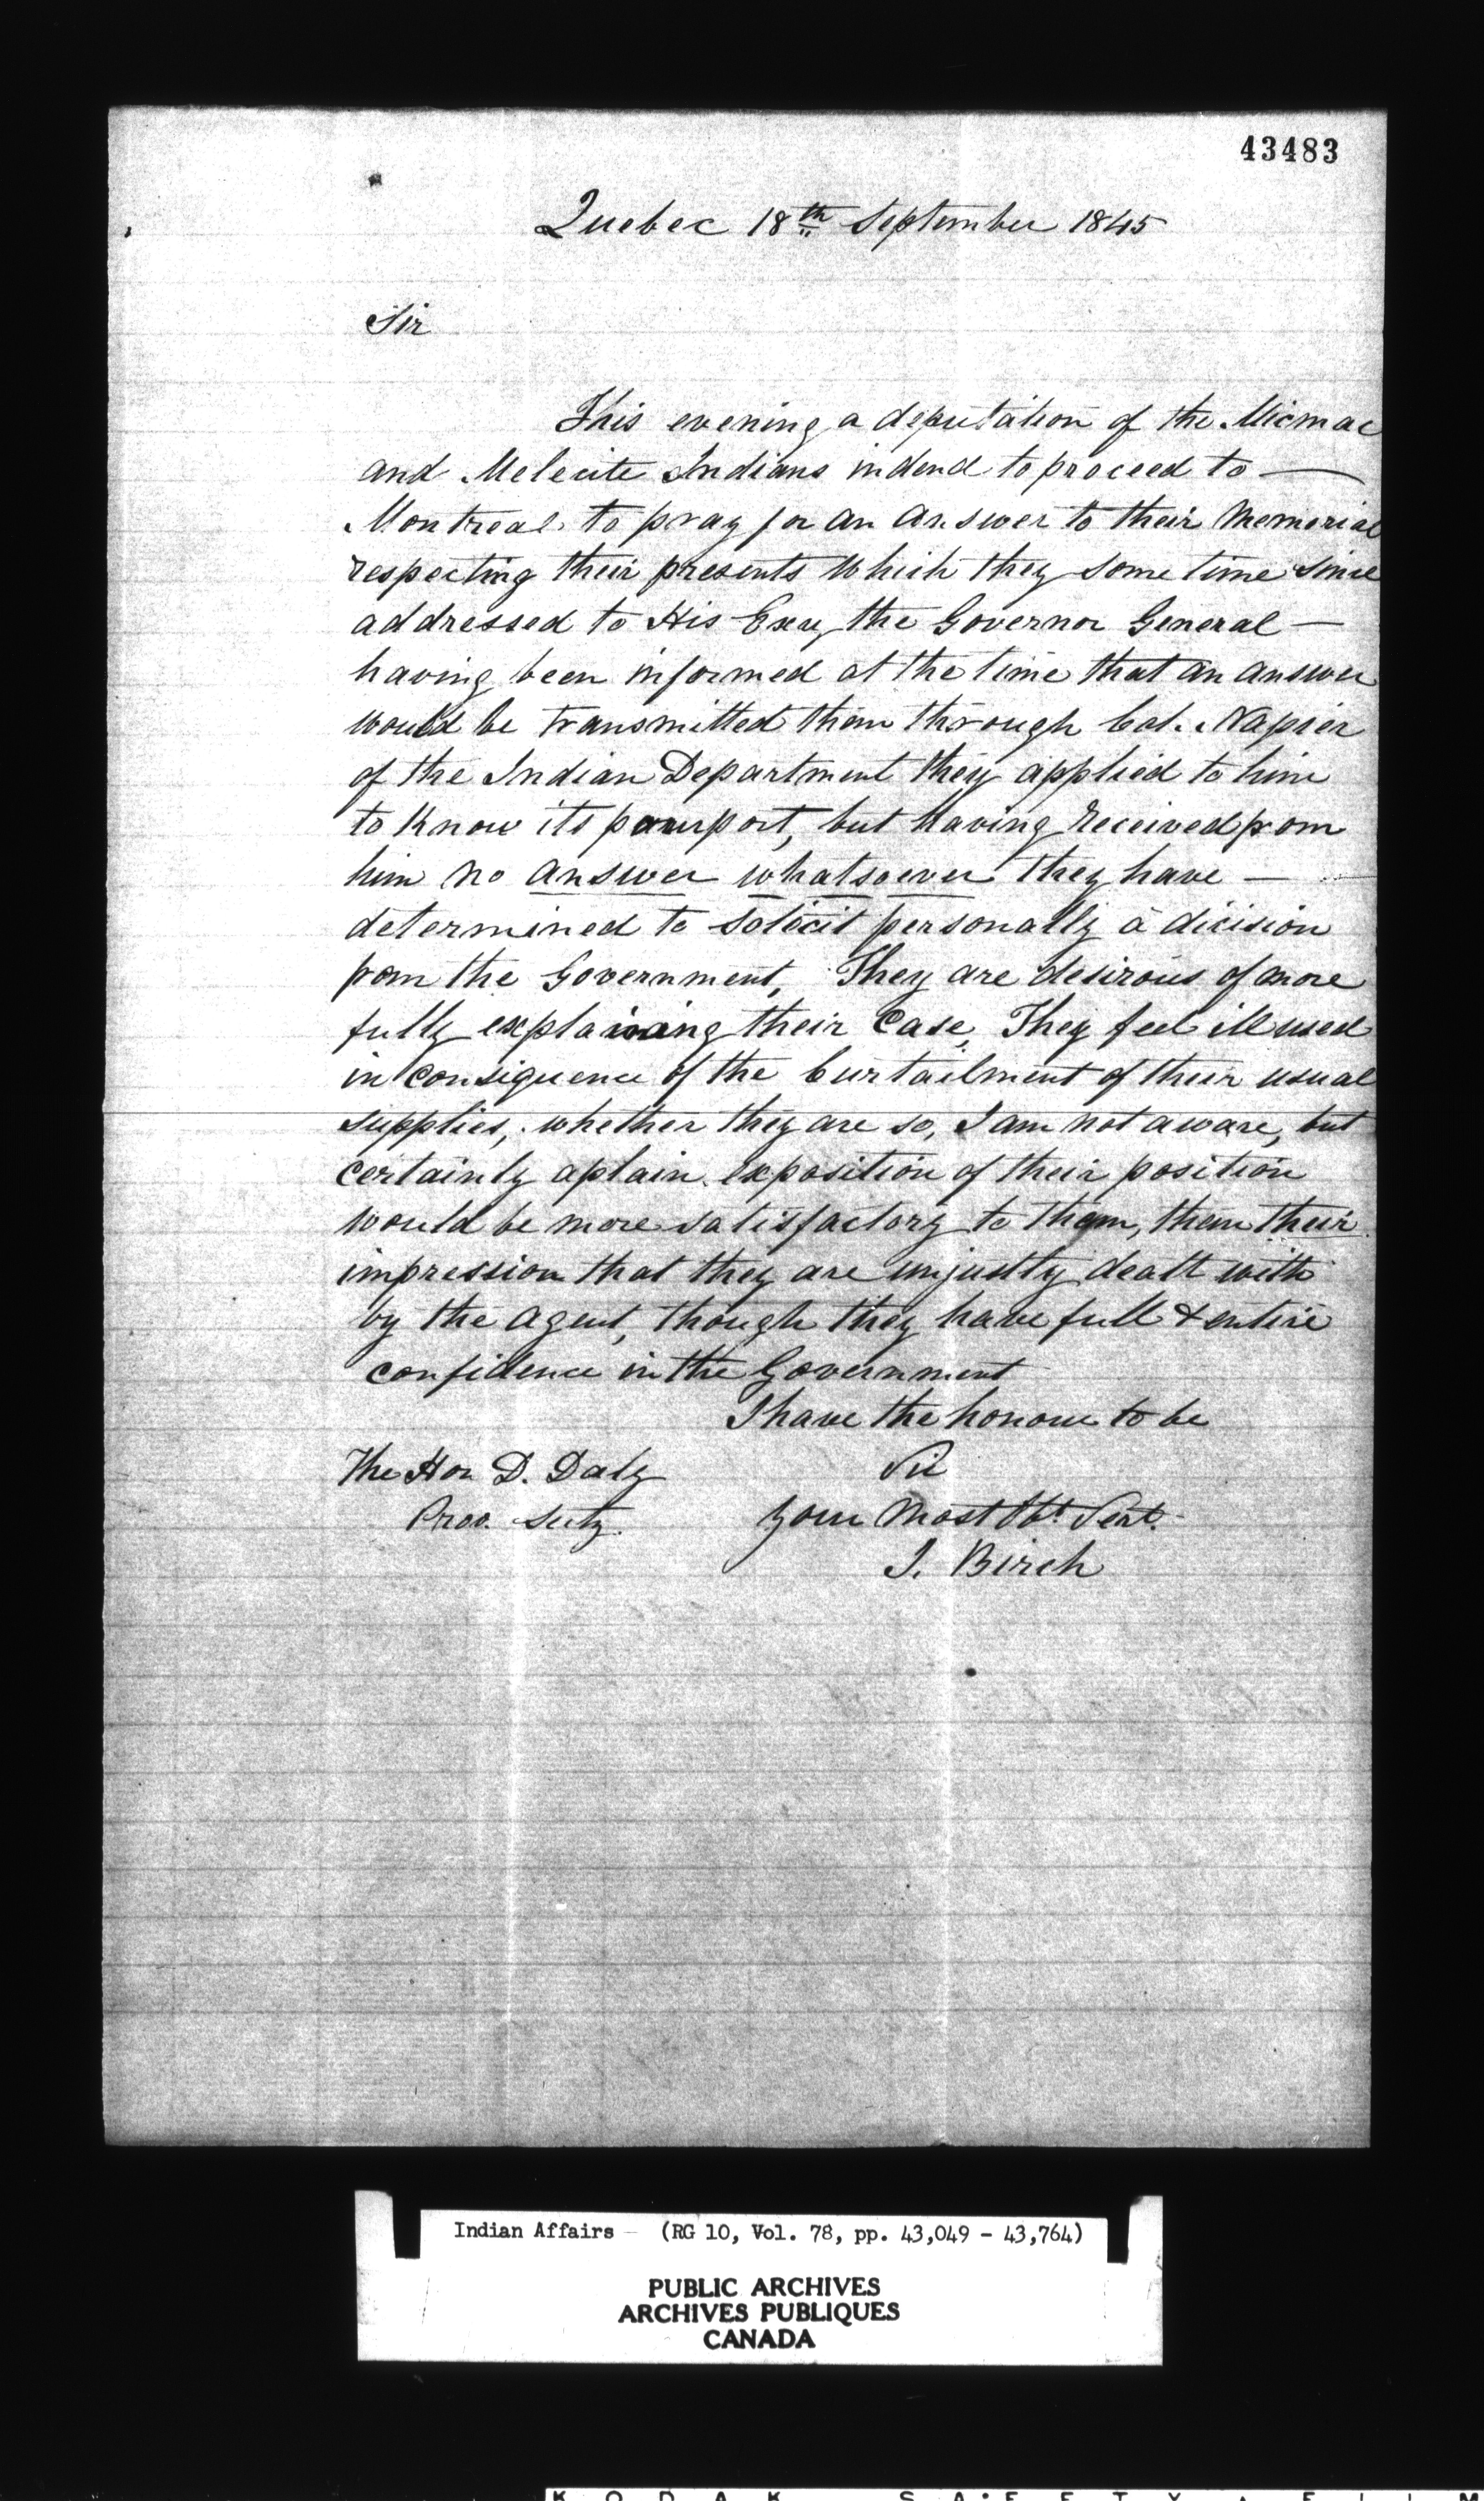 43483
Quebec 18th September 1845
Sir
This evening a deputation of the Micmac
and Melecite Indians indend to proceed to —
Montreal, to pray for an answer to their Memorial
respecting their presents which they some time since
addressed to His Excy the Governor General —
having been informed at the time that an answer
would be transmitted them through Col. Napier
of the Indian Department they applied to him
to know its pourport, but having received from
him no answer whatsoever they have —
determined to solicit personally a dicision
from the Government, They are desirous of more
fully explaining their Case, They feel ill used
in consiquence of the Curtailment of their usual
supplies, whether they are so, I am not aware, but
certainly a plain exposition of their position
would be more satisfactory to them, them their
impression that they are unjustly dealt with
by the agent, though they have full & entire
confidence in the Government
I have the honour to be
The Hon D. Daly Sir
Prov. Secty. Your Most Obt. Servt.
J. Birch
Indian Affairs – (RG 10, Vol. 78, pp. 43,049 - 43,764)
PUBLIC ARCHIVES
ARCHIVES PUBLIQUES
CANADA
KODAK SAFETY FILM